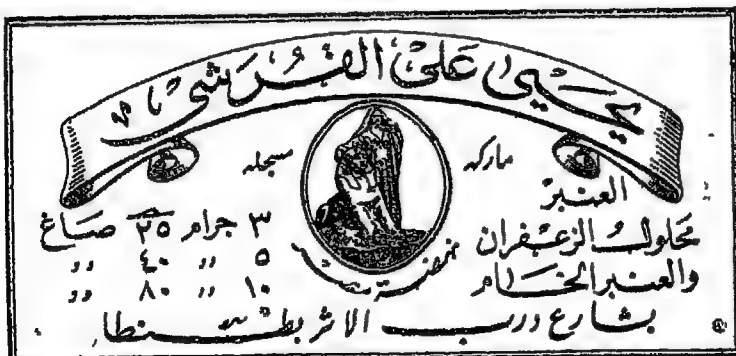 يحيى على القرشى
ماركه مسجله
العنبر
محلول الزعفران
والعنبر الخام
٣ جرام ٢٥ صاغ
٥ " ٤٠ "
١٠ " ٨٠ "
بشارع درب الاثر بطنطا